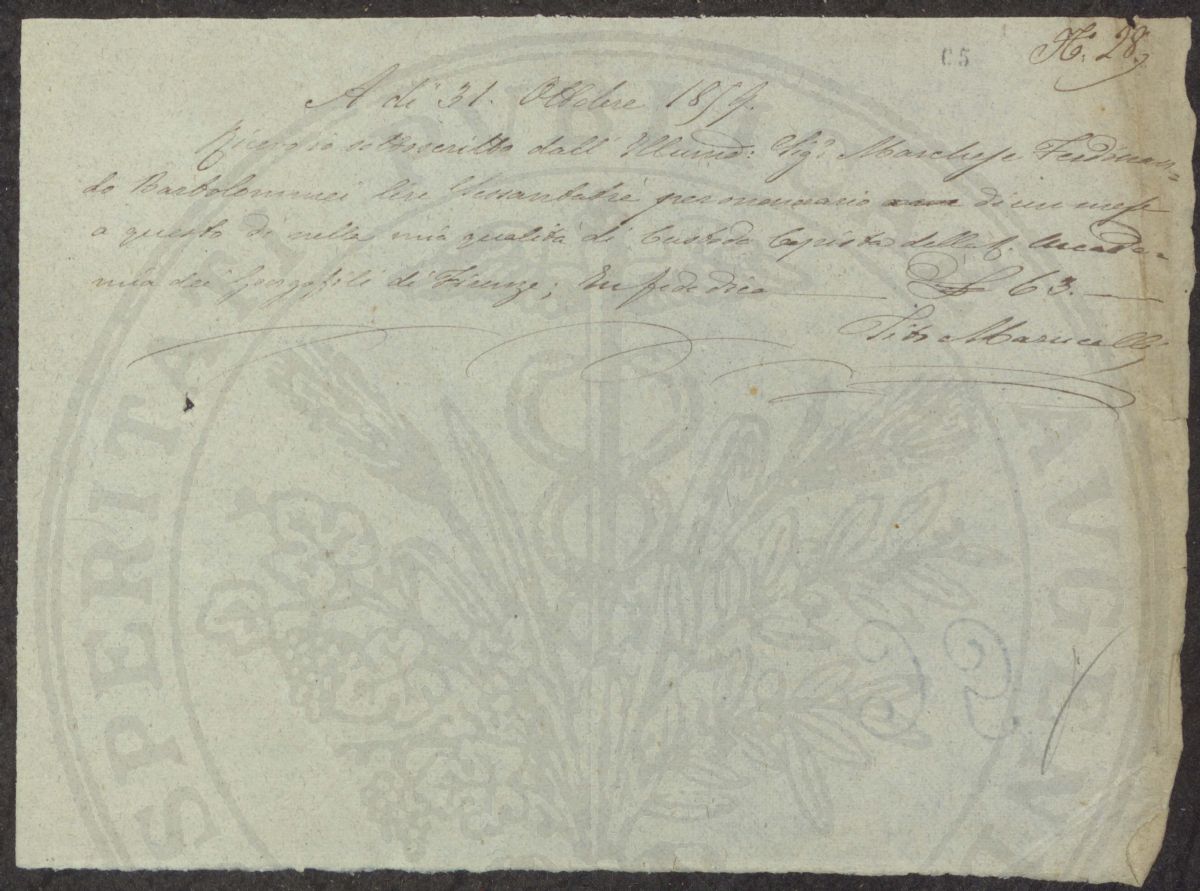 65
N. 28
A dì 31. Ottobre 1859.
Ricevo io sottoscritto dall' Illumo: Sigr. Marchese Ferdinan-
do Bartolommei Lire Sessantatrè per onorario di un mese
a questo dì nella mia qualità di Custode Copista della R. Accade-
mia dei Georgofili di Firenze; In fede dico £ 63.
Tito Marucelli
PROSPERITATI PUBLICAE AUGENDAE